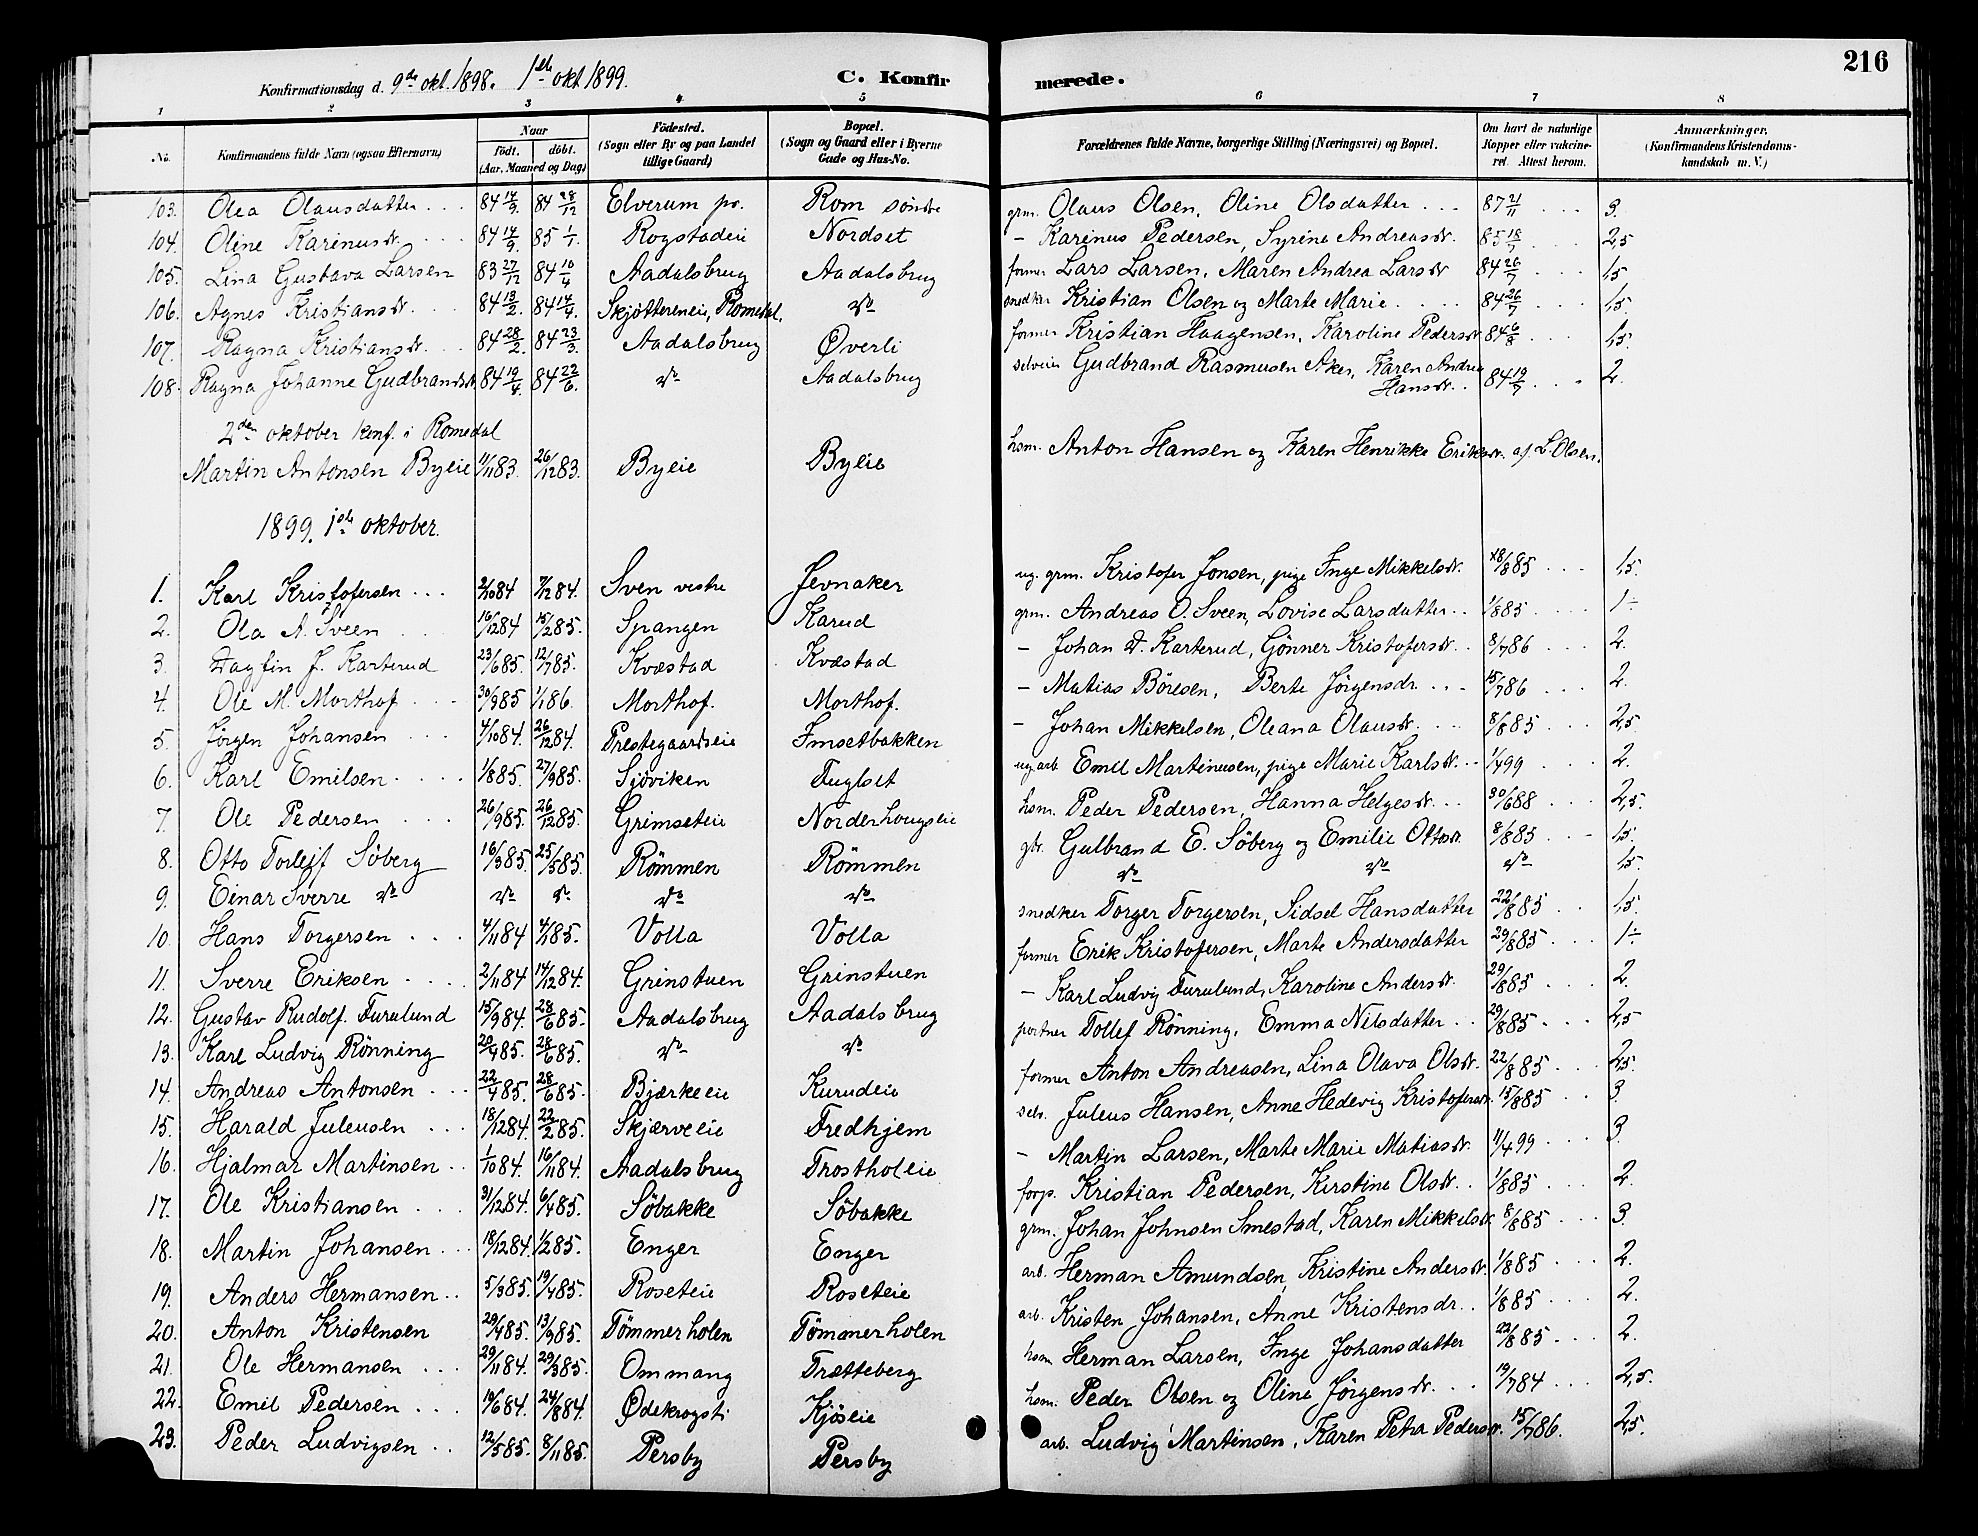 216
Konfirmationsdag d. 9de okt. 1898. 1ste okt 1899. C. Konfirmerede.
1 2 3 4 5 6 7 8
No. Konfirmandens fulde Navn (ogsaa Efternavn) Naar födt. döbt. (Aar, Maaned og Dag) Födested. (Sogn eller By og paa Landet tillige Gaard) Bopæl. (Sogn og Gaard eller i Byerne Gade og Hus-No. Forældrenes fulde Navne, borgerlige Stilling (Næringsvei) og Bopæl. Om havt de naturlige Kopper eller vakcineret. Attest herom. Anmærkninger. (Konfirmandens Kristendomskundskab m. V.)
103. Olea Olausdatter... 84 14/9. 84 28/12 Elverum pr. Rom söndre grm. Olaus Olsen, Oline Olsdatter... 87 21/11... 3.
104. Oline Karinusdr.... 84 14/9. 85 1/1. Rogstadeie Nordset – Karinus Pedersen, Syrine Andreasdr. 85 18/7... 2,5
105. Lina Gustava Larsen 83 27/12 84 10/4 Aadalsbrug Aadalsbrug former Lars Larsen, Maren Andrea Larsdr 84 26/7... 1,5
106. Agnes Kristiansdr... 84 13/2. 84 14/4. Skjöttereneie, Romedal. do snedker Kristian Olsen og Marte Marie.... 84 26/7... 1,5.
107. Ragna Kristiansdr.. 84 28/2. 84 23/3. Aadalsbrug Øverli former Kristian Haagensen, Karoline Pedersdr 84 6/8... 1,5.
108. Ragna Johanne Gudbrandsdr 84 19/4. 84 22/6. do Aadalsbrug selveier Gudbrand Rasmusen Aker, Karen Andrea Hansdr.. 84 19/7... 2.
2den oktober konf. i Romedal
Martin Antonsen Byeie 11/11 83. 26/12 83. Byeie Byeie hsm. Anton Hansen og Karen Henrikke Eriksdr. af L. Olsen.
1899. 1ste oktober.
1. Karl Kristofersen... 2/10 84 7/12 84. Sven vestre Jevnaker ug. grm. Kristofer Jonsen, pige Inge Mikkelsdr. 18/8 85... 1,5.
2. Ola A. Sveen... 16/12 84 15/2 85. Spangen Karud grm. Andreas O. Sveen, Lovise Larsdatter.. 1/8 85... 1÷
3. Dagfin J. Karterud 23/6 85. 12/7 85. Kvæstad Kvæstad – Johan D. Karterud, Gönner Kristofersdr.. 8/7 86... 2.
4. Ole M. Morthof... 30/9 85 1/1 86. Morthof. Morthof. – Matias Böresen, Berte Jörgensdr... 15/7 86... 2.
5. Jörgen Johansen... 4/10 84. 26/12 84. Prestegaardseie Imsetbakken – Johan Mikkelsen, Oleana Olausdr... 8/8 85... 2,5.
6. Karl Emilsen.... 1/8 85. 27/9 85. Sjöviken Fuglset ug. arb. Emil Martinusen, pige Marie Karlsdr.. 1/4 99... 2.
7. Ole Pedersen... 26/9 85. 26/12 85. Grimseteie Norderhougseie hsm. Peder Pedersen, Hanna Helgesdr... 30/6 88... 2,5.
8. Otto Torleif Söberg 16/3 85. 25/5 85. Römmen Römmen gbr. Gulbrand E. Söberg og Emilie Ottosdr. 8/8 85... 1,5.
9. Einar Sverre do do do do do do do do 1,5.
10. Hans Torgersen... 4/11 84 4/1 85. Volla Volla snedker Torger Torgersen, Sidsel Hansdatter 22/8 85.. 1,5.
11. Sverre Eriksen.... 2/11 84. 14/12 84. Grinstuen Grinstuen former Erik Kristofersen, Marte Andersdatter 29/8 85... 1÷
12. Gustav Rudolf. Furulund 15/9 84. 28/6 85. Aadalsbrug Aadalsbrug – Karl Ludvig Furulund, Karoline Andersdr. 29/8 85... 2.
13. Karl Ludvig Rönning 20/4 85. 28/6 85. do do portner Tollef Rönning, Emma Nilsdatter.. 29/8 85... 2,5
14. Andreas Antonsen... 22/4 85. 28/6 85. Bjærkeeie Kurudeie former Anton Andreasen, Lina Olava Olsdr. 22/8 85... 2,5.
15. Harald Juleusen... 18/12 84. 22/2 85. Skjærveeie Fredhjem selv. Juleus Hansen, Anne Hedevig Kristofersdr. 15/8 85.. 3.
16. Hjalmar Martinsen.. 1/10 84. 16/11 84. Aadalsbrug Trostholeie – Martin Larsen, Marte Marie Matiasdr. 11/4 99... 3.
17. Ole Kristiansen... 31/12 84. 6/4 85. Söbakke Söbakke forp. Kristian Pedersen, Kirstine Olsdr.. 1/8 85... 2.
18. Martin Johansen... 18/12 84. 1/2 85. Enger Enger grm. Johan Johnsen Smestad, Karen Mikkelsdr. 8/8 85... 3.
19. Anders Hermansen.. 5/3 85. 19/4 85. Roseteie Roseteie arb. Herman Amundsen, Kristine Andersdr. 1/8 85... 2.
20. Anton Kristensen 29/4 85. 13/9 85. Tömmerholen Tömmerholen arb. Kristen Johansen, Anne Kristensdr.. 1/8 85... 2.
21. Ole Hermansen... 29/11 84. 29/3 85. Ommang Trætteberg hsm Herman Larsen, Inge Johansdatter 22/8 85... 2.
22. Emil Pedersen... 19/6 84. 24/8 84. Ødekrogsti Kjöseie hsm. Peder Olsen og Oline Jörgensdr.... 19/7 84... 2,5.
23. Peder Ludvigsen.. 12/5 85. 8/11 85. Persby Persby arb. Ludvig Martinsen, Karen Petra Pedersdr. 15/7 86. 2,5.